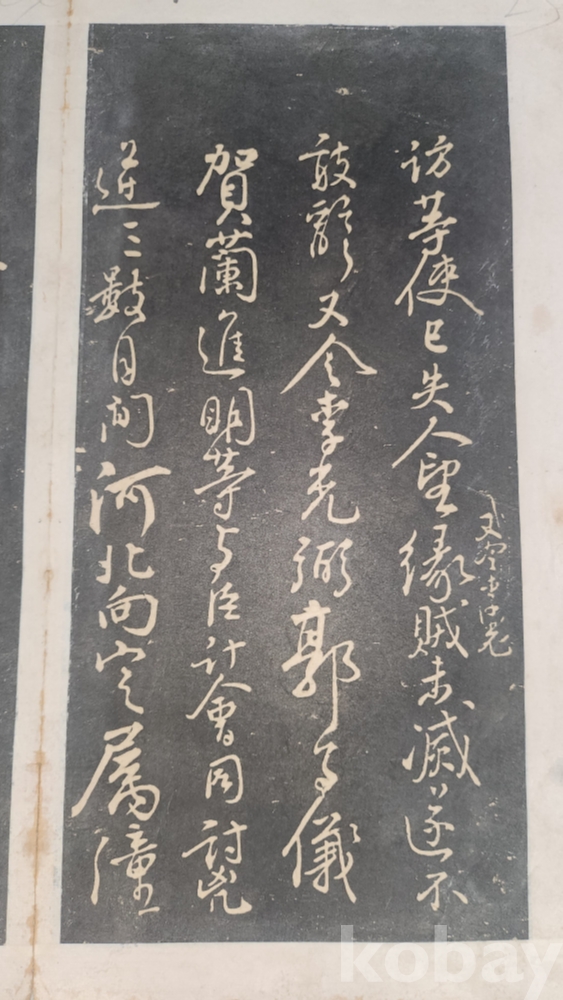 訪等使已失人望緣賊未滅遂不
敢辭又令李光弼郭子儀
賀蘭進明等与臣計會同討兇
逆三數月間河北向定屬潼
kobay